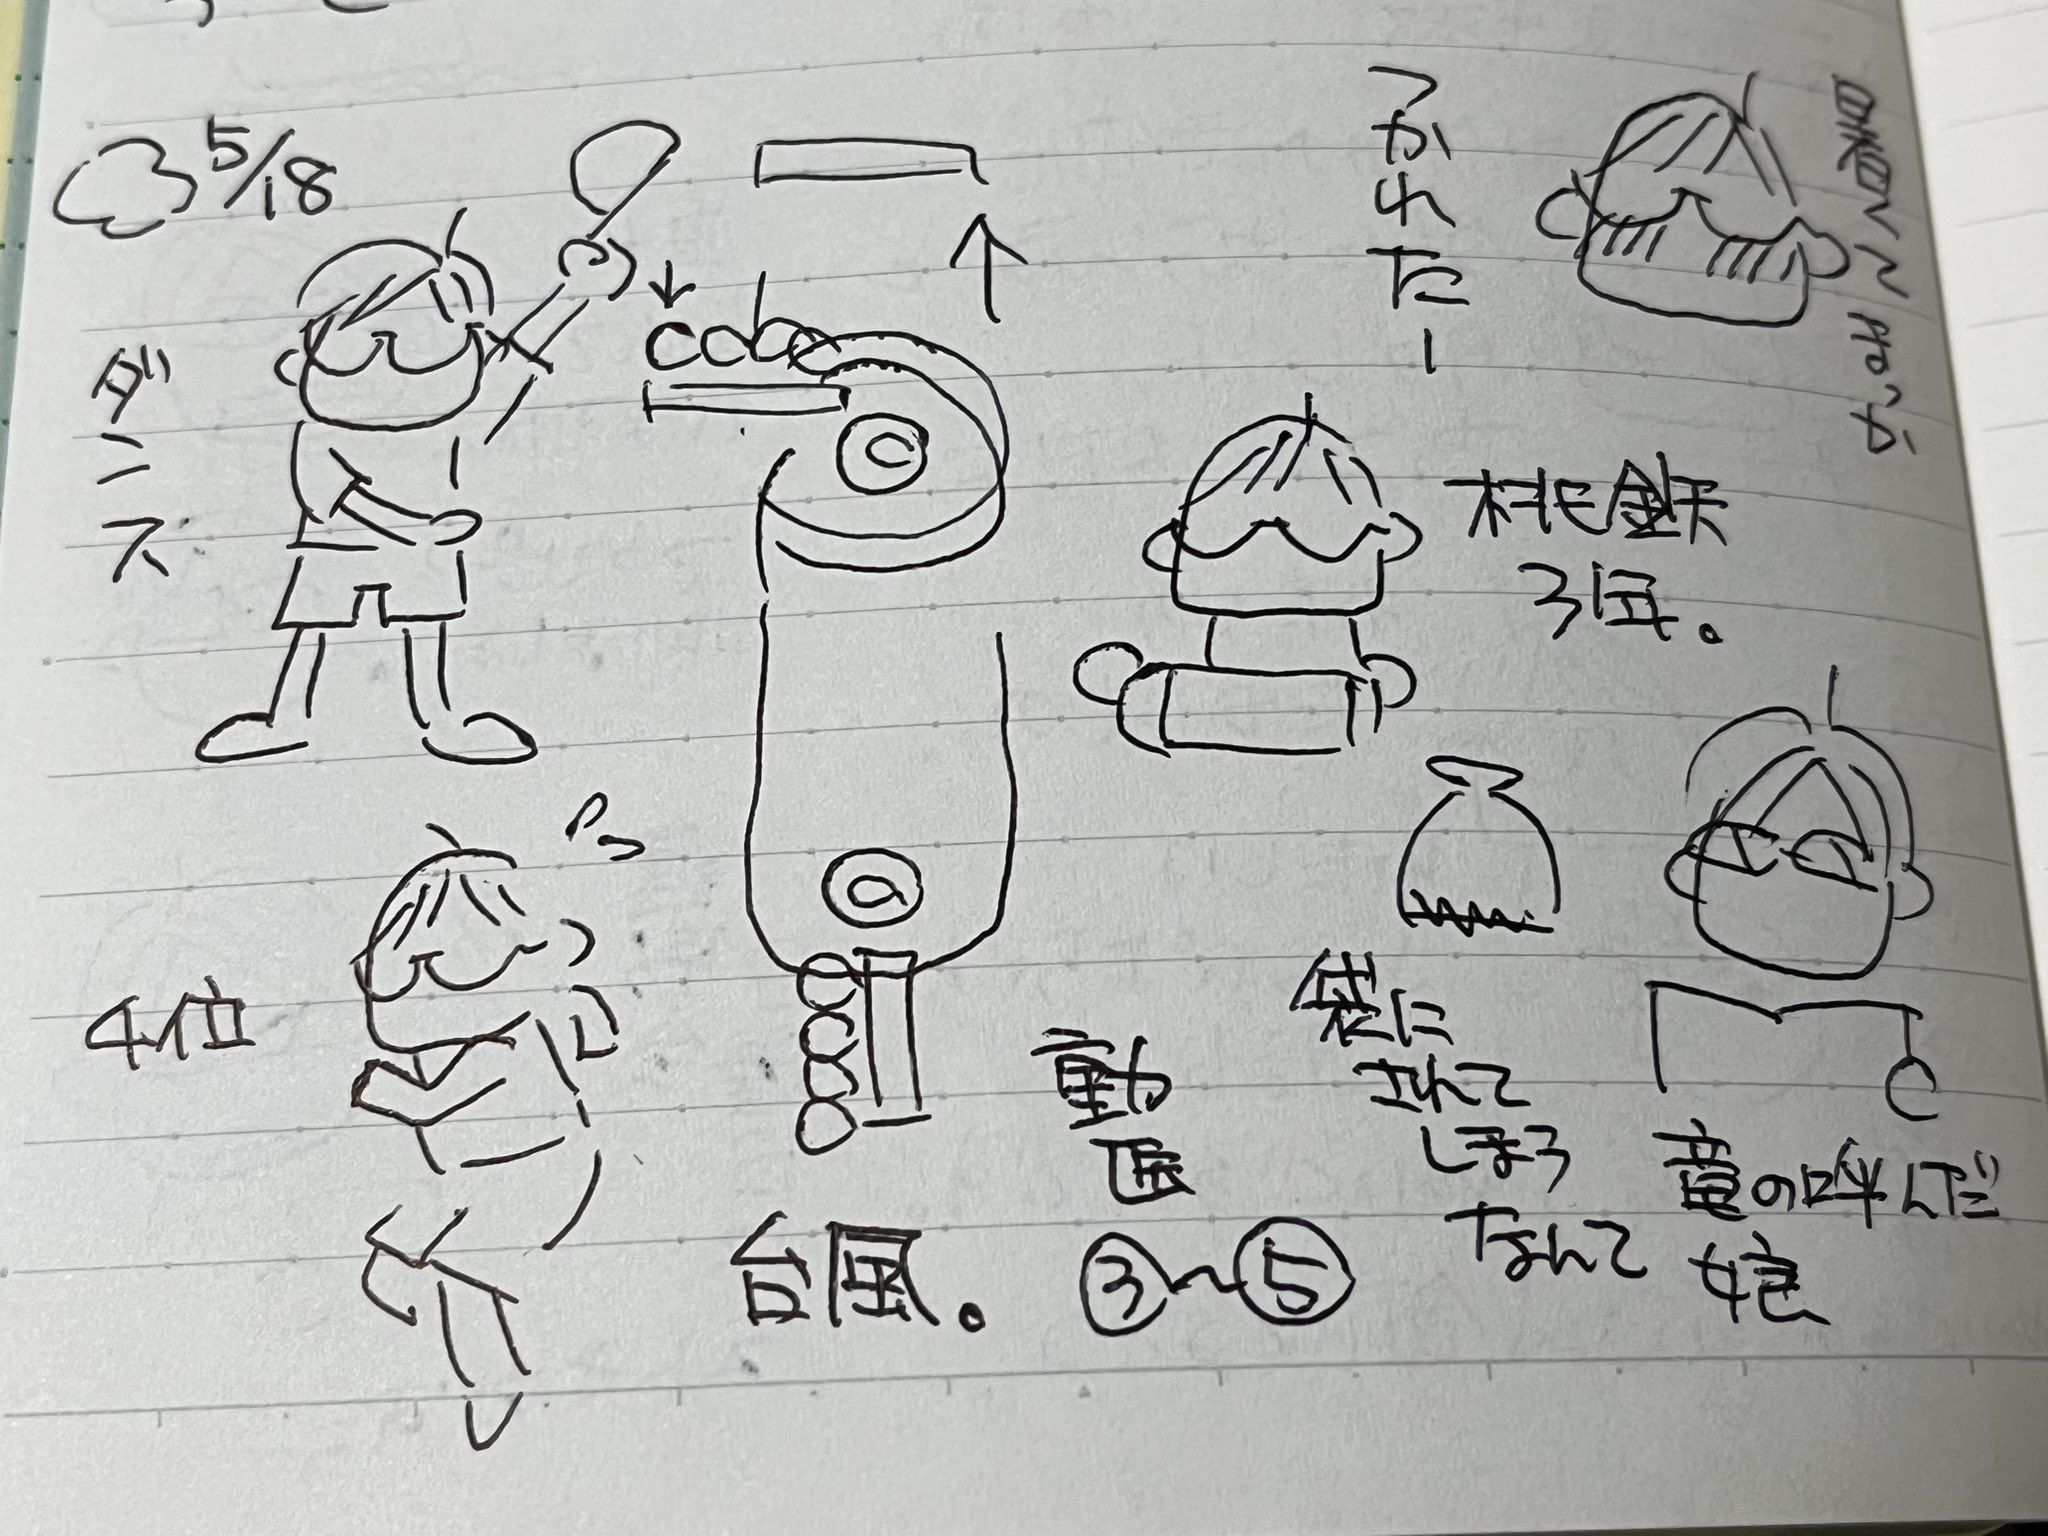 5/18
ダンス
つかれたー
桃鉄
3回。
4位
台風。
動画
③〜⑤
袋に
されて
しまう
なんて
竜の呼んだ
娘